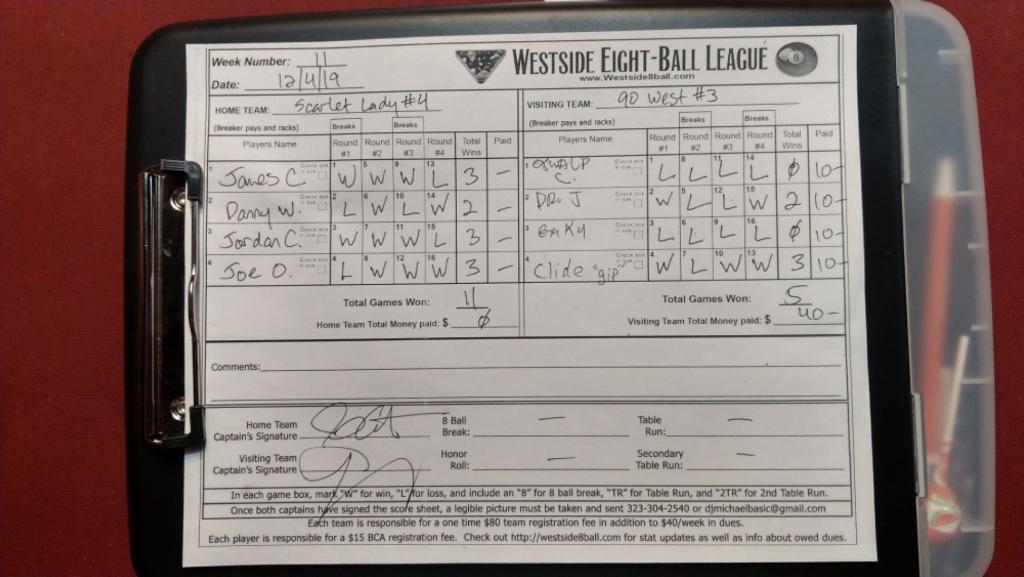 Week Number: 11
WESTSIDE EIGHT-BALL LEAGUE
8
www.Westside8ball.com
Date: 12/4/19
HOME TEAM: Scarlet Lady #4
VISITING TEAM: 90 West #3
(Breaker pays and racks) Breaks Breaks
(Breaker pays and racks) Breaks Breaks
Players Name Round #1 Round #2 Round #3 Round #4 Total Wins Paid
Players Name Round #1 Round #2 Round #3 Round #4 Total Wins Paid
1 James C. 1 W 5 W 9 W 13 L 3 –
1 OSWALP C. 1 L 8 L 11 L 14 L 0 10-
2 Danny W. 2 L 6 W 10 L 14 W 2 –
2 DR. J 2 W 5 L 12 L 15 W 2 10-
3 Jordan C. 3 W 7 W 11 W 15 L 3 –
3 3 L 6 L 9 L 16 L 0 10-
4 Joe O. 4 L 8 W 12 W 16 W 3 –
4 Clide "gip" 4 W 7 L 10 W 13 W 3 10-
Total Games Won: 11
Total Games Won: 5
Home Team Total Money paid: $ 0
Visiting Team Total Money paid: $ 40-
Comments:
Home Team
Captain's Signature
8 Ball
Break: —
Table
Run: —
Visiting Team
Captain's Signature
Honor
Roll: —
Secondary
Table Run: —
In each game box, mark "W" for win, "L" for loss, and include an "8" for 8 ball break, "TR" for Table Run, and "2TR" for 2nd Table Run.
Once both captains have signed the score sheet, a legible picture must be taken and sent 323-304-2540 or djmichaelbasic@gmail.com
Each team is responsible for a one time $80 team registration fee in addition to $40/week in dues.
Each player is responsible for a $15 BCA registration fee. Check out http://westside8ball.com for stat updates as well as info about owed dues.